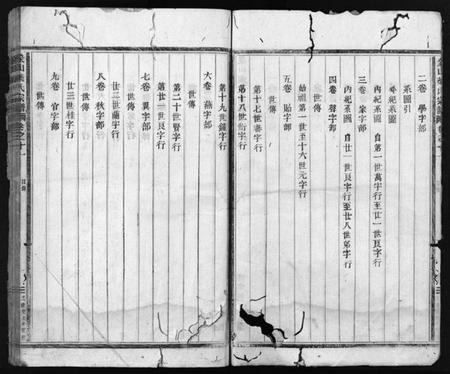 二卷 學字部
系圖引
外紀系圖
三卷 家字部
內紀系圖 自第一世萬字行至廿一世良字行
四卷 聲字部
內紀系圖 自廿一世良字行至廿八世弟字行
世傳
始祖第一世至十六世元字行
五卷 貽字部
世傳
第十七世壽字行
第十八世衍字行
第十九世鍾字行
六卷 燕字部
世傳
第二十世賢字行
第廿一世良字行
七卷 翼字部
世傳
廿二世蘭字行
八卷 秋字部
世傳
廿三世桂字行
九卷 官字部
世傳
目錄